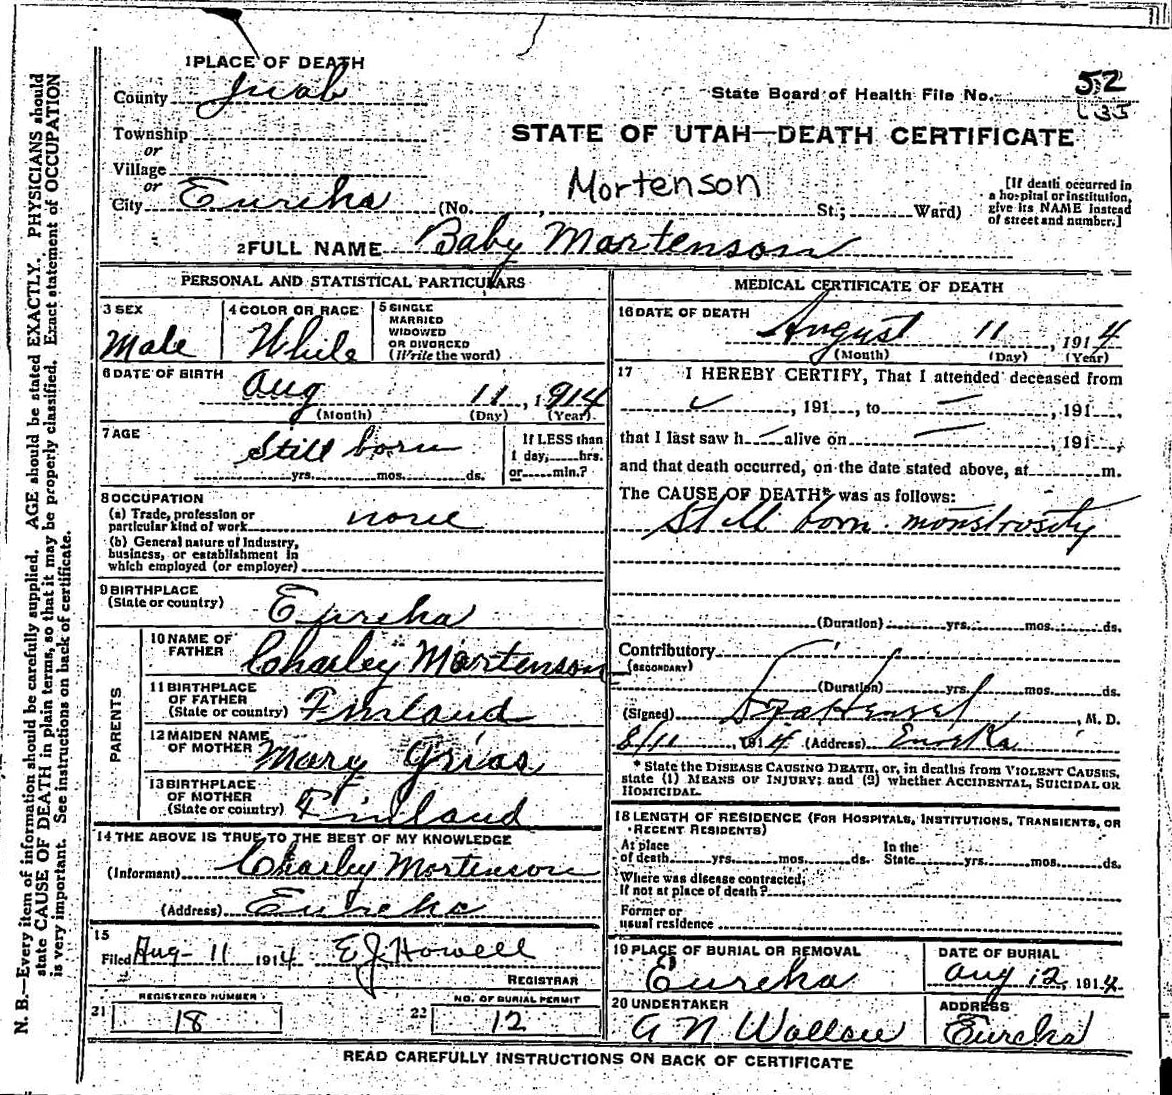 1 PLACE OF DEATH
County Juab
Township
or
Village
or
City Eureka (No. , St.; Ward)
State Board of Health File No. 52
STATE OF UTAH—DEATH CERTIFICATE
Mortenson
[If death occurred in
a hospital or institution,
give its NAME instead
of street and number.]
2 FULL NAME Baby Mortenson
PERSONAL AND STATISTICAL PARTICULARS
3 SEX
Male
4 COLOR OR RACE
White
5 SINGLE
MARRIED
WIDOWED
OR DIVORCED
(Write the word)
6 DATE OF BIRTH
Aug 11, 1914
(Month) (Day) (Year)
7 AGE
Still born
yrs. mos. ds.
If LESS than
1 day, hrs.
or min.?
8 OCCUPATION
(a) Trade, profession or
particular kind of work none
(b) General nature of Industry,
business, or establishment in
which employed (or employer)
9 BIRTHPLACE
(State or country) Eureka
PARENTS
10 NAME OF
FATHER Charley Mortenson
11 BIRTHPLACE
OF FATHER
(State or country) Finland
12 MAIDEN NAME
OF MOTHER Mary
13 BIRTHPLACE
OF MOTHER
(State or country) Finland
14 THE ABOVE IS TRUE TO THE BEST OF MY KNOWLEDGE
(Informant) Charley Mortenson
(Address) Eureka
15
Filed Aug-11 1914 E J Howell
REGISTRAR
REGISTERED NUMBER
21 18
NO. OF BURIAL PERMIT
22 12
MEDICAL CERTIFICATE OF DEATH
16 DATE OF DEATH
August 11, 1914
(Month) (Day) (Year)
17 I HEREBY CERTIFY, That I attended deceased from
, 191 , to , 191 ,
that I last saw h alive on , 191 ,
and that death occurred, on the date stated above, at m.
The CAUSE OF DEATH* was as follows:
Still born monstrosity
(Duration) yrs. mos. ds.
Contributory
(SECONDARY)
(Duration) yrs. mos. ds.
(Signed) Hensel, M. D.
8/11, 1914 (Address) Eureka
* State the DISEASE CAUSING DEATH, or, in deaths from VIOLENT CAUSES,
state (1) MEANS OF INJURY; and (2) whether ACCIDENTAL, SUICIDAL OR
HOMICIDAL.
18 LENGTH OF RESIDENCE (FOR HOSPITALS, INSTITUTIONS, TRANSIENTS, OR
RECENT RESIDENTS)
At place
of death yrs. mos. ds. In the
State yrs. mos. ds.
Where was disease contracted,
If not at place of death?
Former or
usual residence
19 PLACE OF BURIAL OR REMOVAL
Eureka
DATE OF BURIAL
Aug 12, 1914
20 UNDERTAKER
A N Wallace
ADDRESS
Eureka
READ CAREFULLY INSTRUCTIONS ON BACK OF CERTIFICATE
N. B.—Every item of information should be carefully supplied. AGE should be stated EXACTLY. PHYSICIANS should
state CAUSE OF DEATH in plain terms, so that it may be properly classified. Exact statement of OCCUPATION
is very important. See instructions on back of certificate.